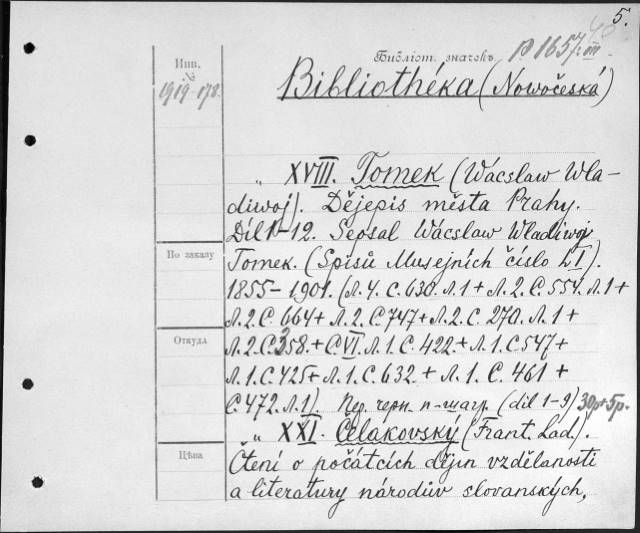 5.
Инв.
№
1919-178.
Библіот. значекъ р 1657/III
Bibliothéka (Nowočeská)
„ XVIII. Tomek (Wácslaw Wla-
diwoj). Dějepis města Prahy.
Díl 1-12. Sepsal Wácslaw Wladiwoj
По заказу
Tomek. (Spisů Musejních číslo LI).
1855-1901. (Л. 4. С. 630. Л. 1 + Л. 2. С. 554. Л. 1 +
Л. 2. С. 664 + Л. 2. С. 747 + Л. 2. С. 270. Л. 1 +
Откуда
Л. 2. С. 358. + С. VI. Л. 1. С. 422 + Л. 1. С 547 +
Л. 1. С. 425 + Л. 1. С. 632. + Л. 1. С. 461 +
С. 472. Л. 1). Пер. черн. п-шагр. (díl 1-9) 30р+5р.
„ XXI. Čelakovský (Frant. Lad.).
Цѣна
Čtení o počátcích dějin vzdělanosti
a literatury národův slovanských,